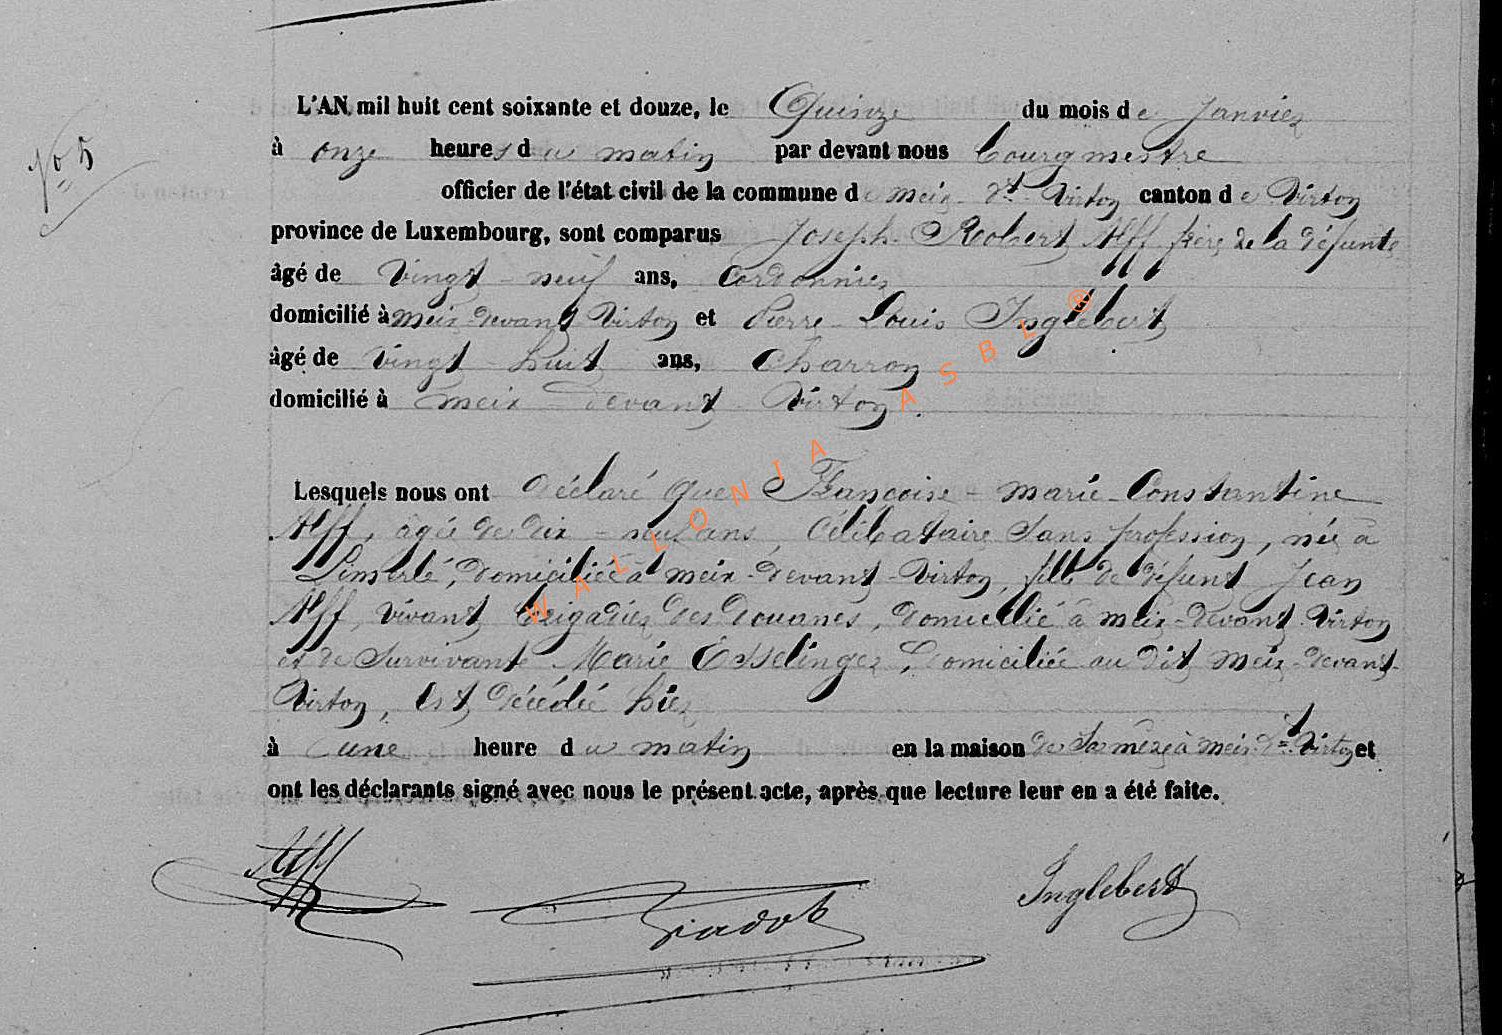 L'AN mil huit cent soixante et douze, le Quinze du mois de Janvier
No 5
à onze heures du matin par devant nous Bourgmestre
officier de l'état civil de la commune de Meix-dt-Virton canton de Virton
province de Luxembourg, sont comparus Joseph-Robert Alff frère de la défunte
âgé de vingt-neuf ans, Cordonnier
domicilié à Meix-devant-Virton et Pierre-Louis Inglebert
âgé de vingt-huit ans, Charron
domicilié à Meix-devant-Virton.
Lesquels nous ont déclaré que Françoise-Marie-Constantine
Alff, agée de dix-neuf ans, Célibataire sans profession, née à
Limerlé, domiciliée à Meix-devant-Virton, fille de défunt Jean
Alff, vivant Brigadier des douanes, domicilié à Meix-devant-Virton
et de survivante Marie Esselinger, domiciliée au dit Meix-devant-
Virton, est décédée hier
à une heure du matin en la maison de sa mère à Meix-dt-Virton et
ont les déclarants signé avec nous le présent acte, après que lecture leur en a été faite.
Alff
Inglebert
WALLONIA ASBL ®